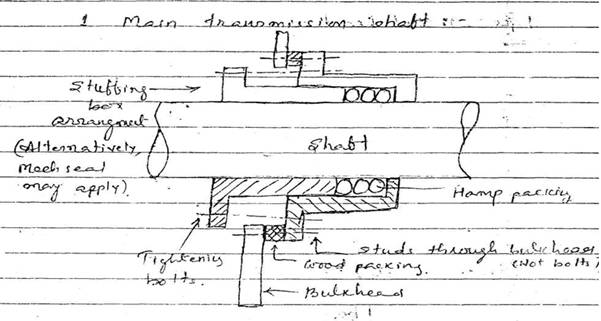 1 Main transmission shaft :-
Stuffing
box
arrangmet
(Alternatively,
Mech seal
may apply).
Shaft
Hamp packing
Tightening
bolts.
Studs through bulkhead
(Not bolts)
wood packing.
Bulkhead